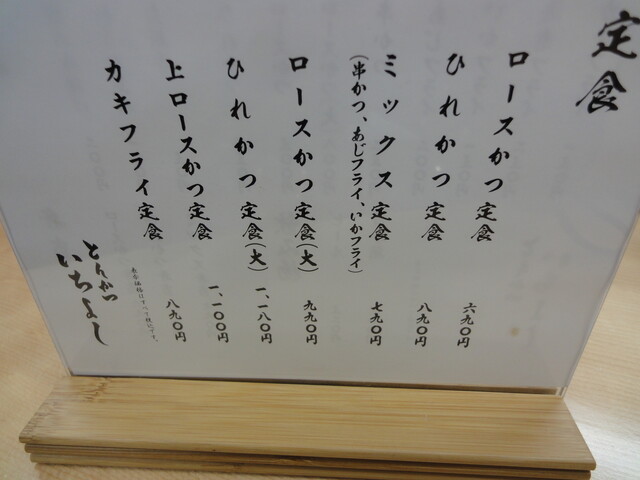 定食
ロースかつ定食 六九〇円
ひれかつ定食 八九〇円
ミックス定食 七九〇円
(串かつ、あじフライ、いかフライ)
ロースかつ定食(大) 九九〇円
ひれかつ定食(大) 一、一八〇円
上ロースかつ定食 一、一〇〇円
カキフライ定食 八九〇円
表示価格はすべて税込です。
とんかつ
いちよし